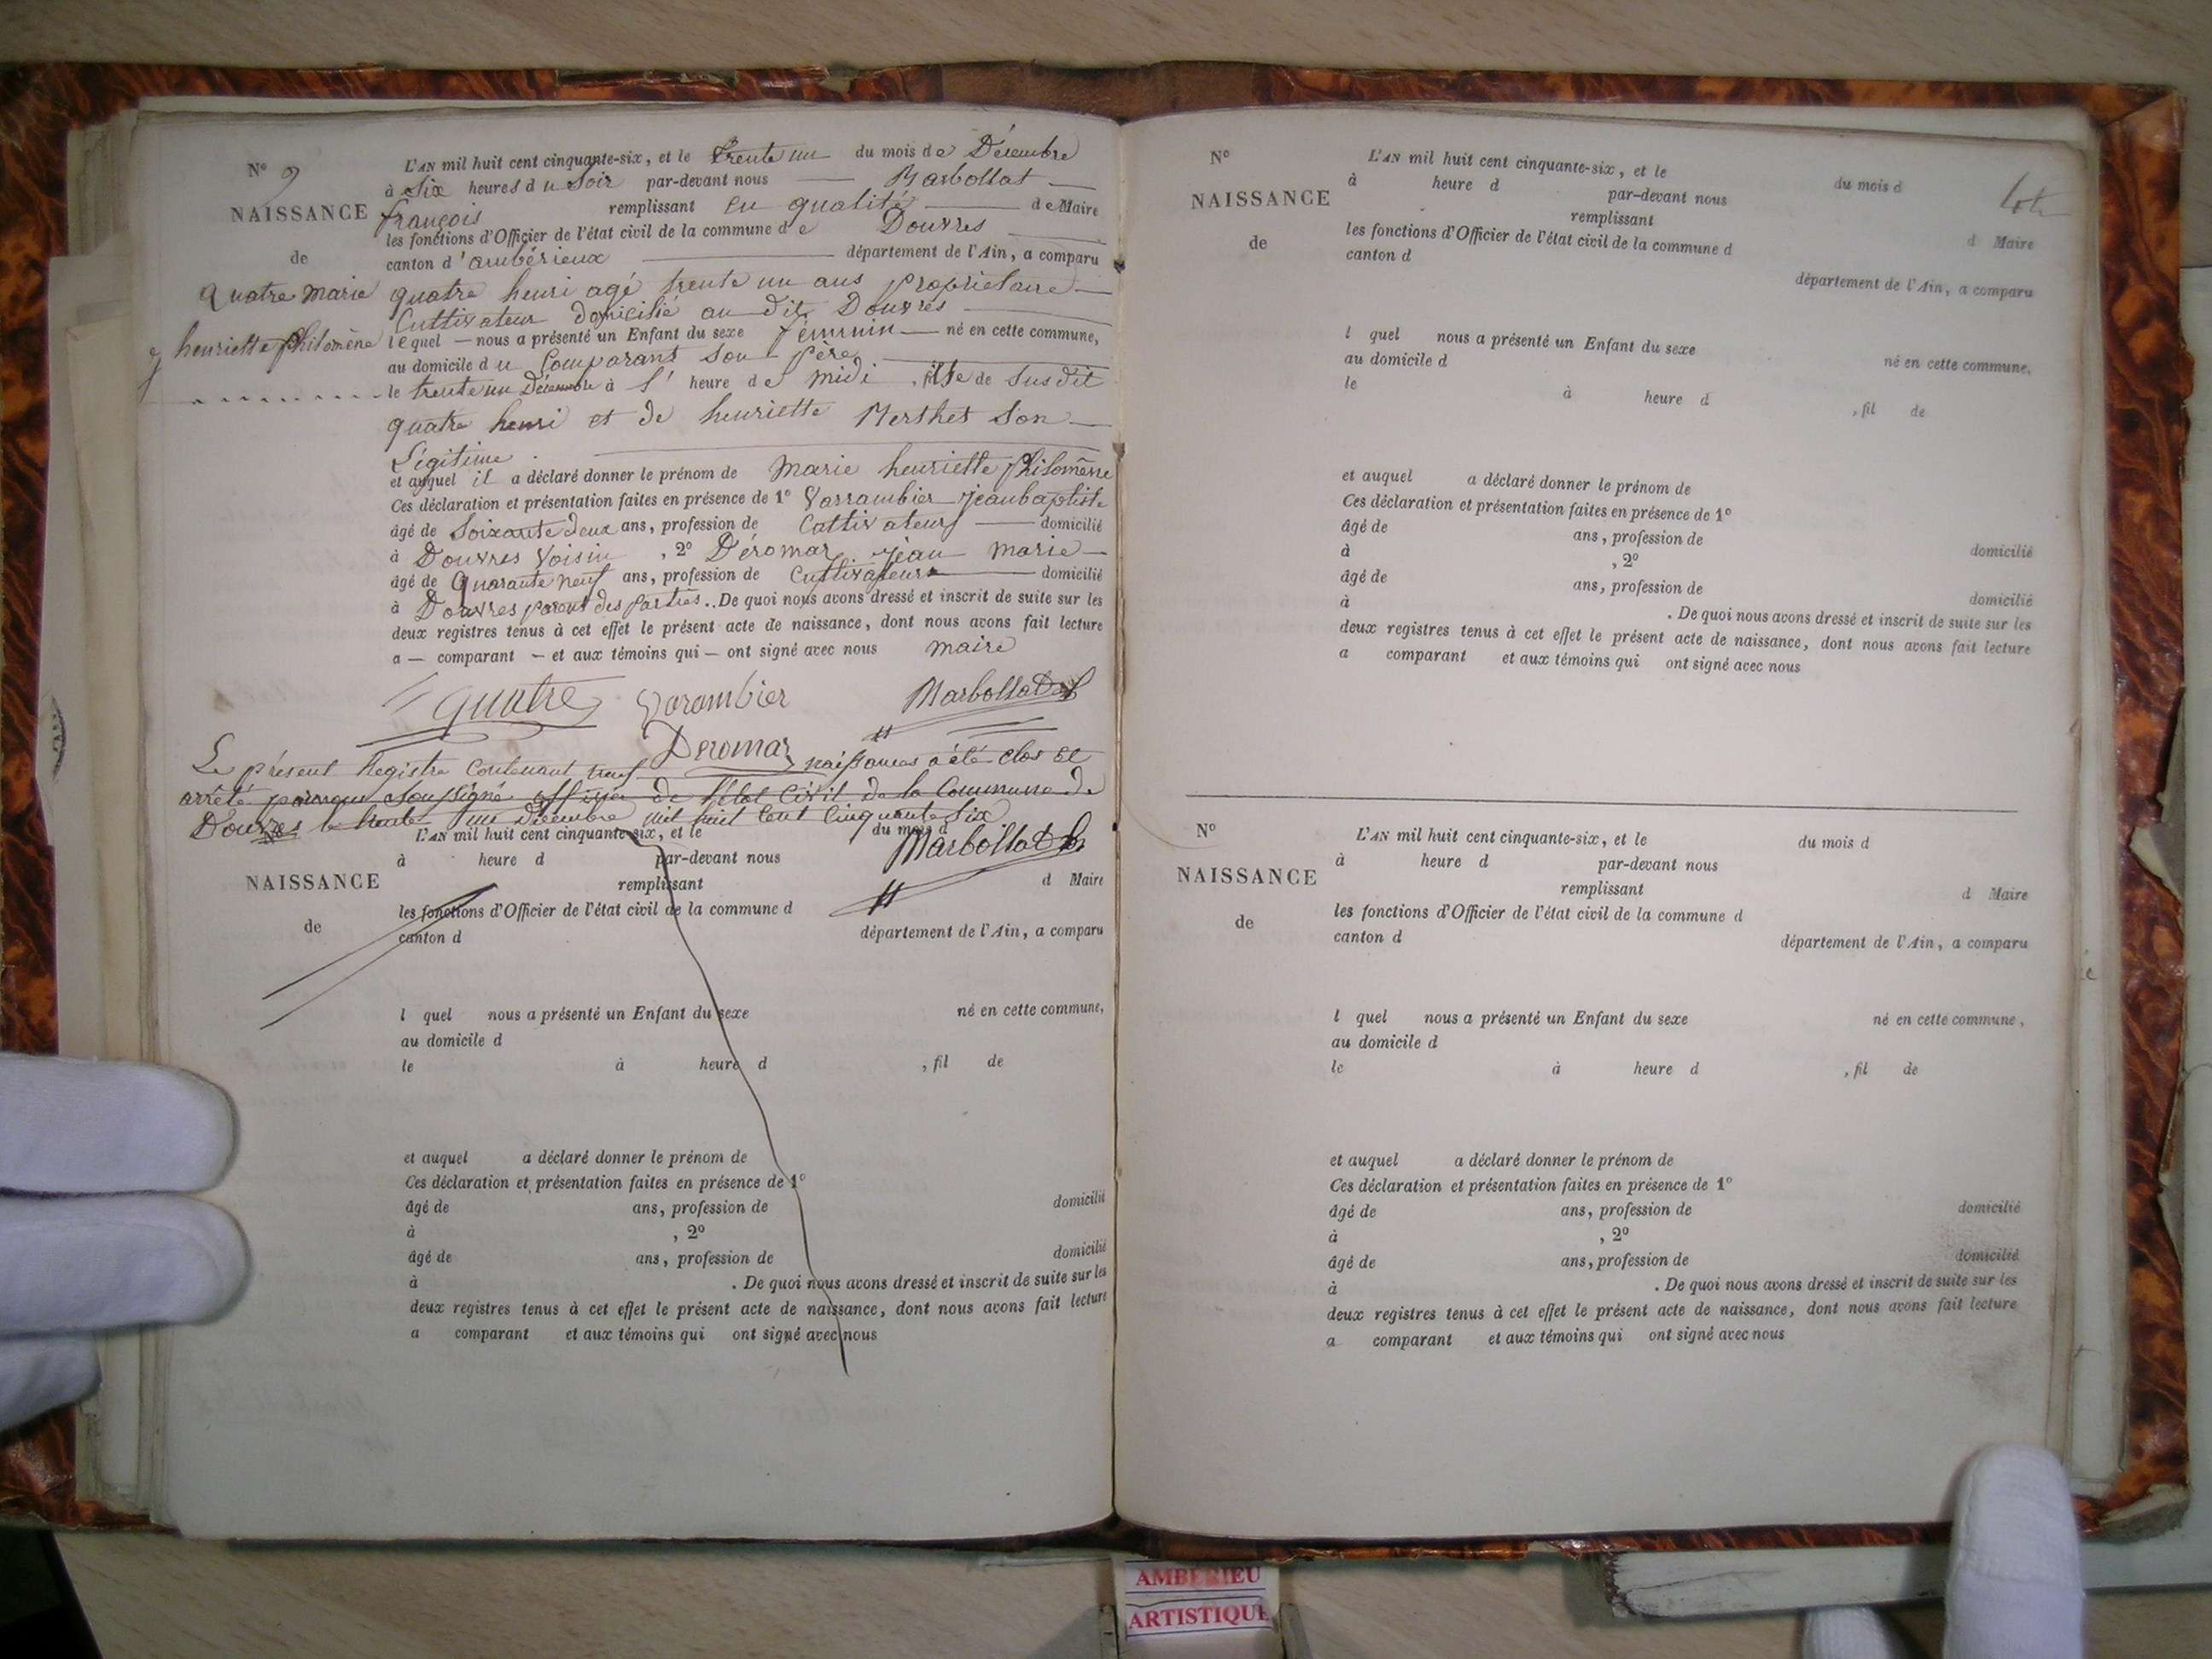 N° 9
L'AN mil huit cent cinquante-six, et le trente un du mois de Décembre
à Six heures du Soir par-devant nous Marbollat
NAISSANCE
françois remplissant en qualité de Maire
les fonctions d'Officier de l'état civil de la commune de Douvres
de
canton d'ambérieux département de l'Ain, a comparu
quatre marie
henriette philomène
quatre henri agé trente un ans propriétaire
Cultivateur domicilié au dit Douvres
lequel — nous a présenté un Enfant du sexe féminin — né en cette commune,
au domicile du Comparant son père
le trente un Décembre à l' heure de midi, fille de Susdit
quatre henri et de henriette Merthet Son
Légitime
et auquel il a déclaré donner le prénom de marie henriette philomène
Ces déclaration et présentation faites en présence de 1° Varrambier jeanbaptiste
âgé de Soixante deux ans, profession de Cultivateur — domicilié
à Douvres Voisin, 2° Déromas jean marie
âgé de Quarante neuf ans, profession de Cultivateur — domicilié
à Douvres parent des parties. De quoi nous avons dressé et inscrit de suite sur les
deux registres tenus à cet effet le présent acte de naissance, dont nous avons fait lecture
a — comparant — et aux témoins qui — ont signé avec nous maire
quatre Varambier Marbollat
Deromas
Le présent Registre Contenant neuf naissances a été clos et
arrêté par nous Soussigné officier de l'état Civil de la Commune de
Douvres le trente une Décembre mil huit Cent Cinquante Six
Marbollat
L'AN mil huit cent cinquante-six, et le du mois d
à heure d par-devant nous
NAISSANCE
remplissant d Maire
les fonctions d'Officier de l'état civil de la commune d
de
canton d département de l'Ain, a comparu
l quel nous a présenté un Enfant du sexe né en cette commune,
au domicile d
le à heure d , fil de
et auquel a déclaré donner le prénom de
Ces déclaration et présentation faites en présence de 1°
âgé de ans, profession de domicilié
à , 2°
âgé de ans, profession de domicilié
à . De quoi nous avons dressé et inscrit de suite sur les
deux registres tenus à cet effet le présent acte de naissance, dont nous avons fait lecture
a comparant et aux témoins qui ont signé avec nous
N°
L'AN mil huit cent cinquante-six, et le du mois d
à heure d par-devant nous
NAISSANCE
remplissant d Maire
les fonctions d'Officier de l'état civil de la commune d
de
canton d département de l'Ain, a comparu
l quel nous a présenté un Enfant du sexe né en cette commune,
au domicile d
le à heure d , fil de
et auquel a déclaré donner le prénom de
Ces déclaration et présentation faites en présence de 1°
âgé de ans, profession de domicilié
à , 2°
âgé de ans, profession de domicilié
à . De quoi nous avons dressé et inscrit de suite sur les
deux registres tenus à cet effet le présent acte de naissance, dont nous avons fait lecture
a comparant et aux témoins qui ont signé avec nous
N°
L'AN mil huit cent cinquante-six, et le du mois d
à heure d par-devant nous
NAISSANCE
remplissant d Maire
les fonctions d'Officier de l'état civil de la commune d
de
canton d département de l'Ain, a comparu
l quel nous a présenté un Enfant du sexe né en cette commune,
au domicile d
le à heure d , fil de
et auquel a déclaré donner le prénom de
Ces déclaration et présentation faites en présence de 1°
âgé de ans, profession de domicilié
à , 2°
âgé de ans, profession de domicilié
à . De quoi nous avons dressé et inscrit de suite sur les
deux registres tenus à cet effet le présent acte de naissance, dont nous avons fait lecture
a comparant et aux témoins qui ont signé avec nous
AMBERIEU
ARTISTIQUE